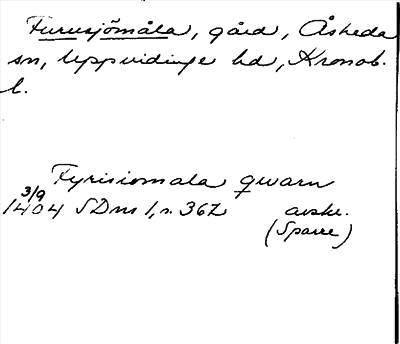 Furusjömåla, gård, Åsheda
sn, Uppvidinge hd, Kronob.
l.
Fyrisiomala qwarn
3/9
1404 SDns 1, s. 362 avskr.
(Sparre)